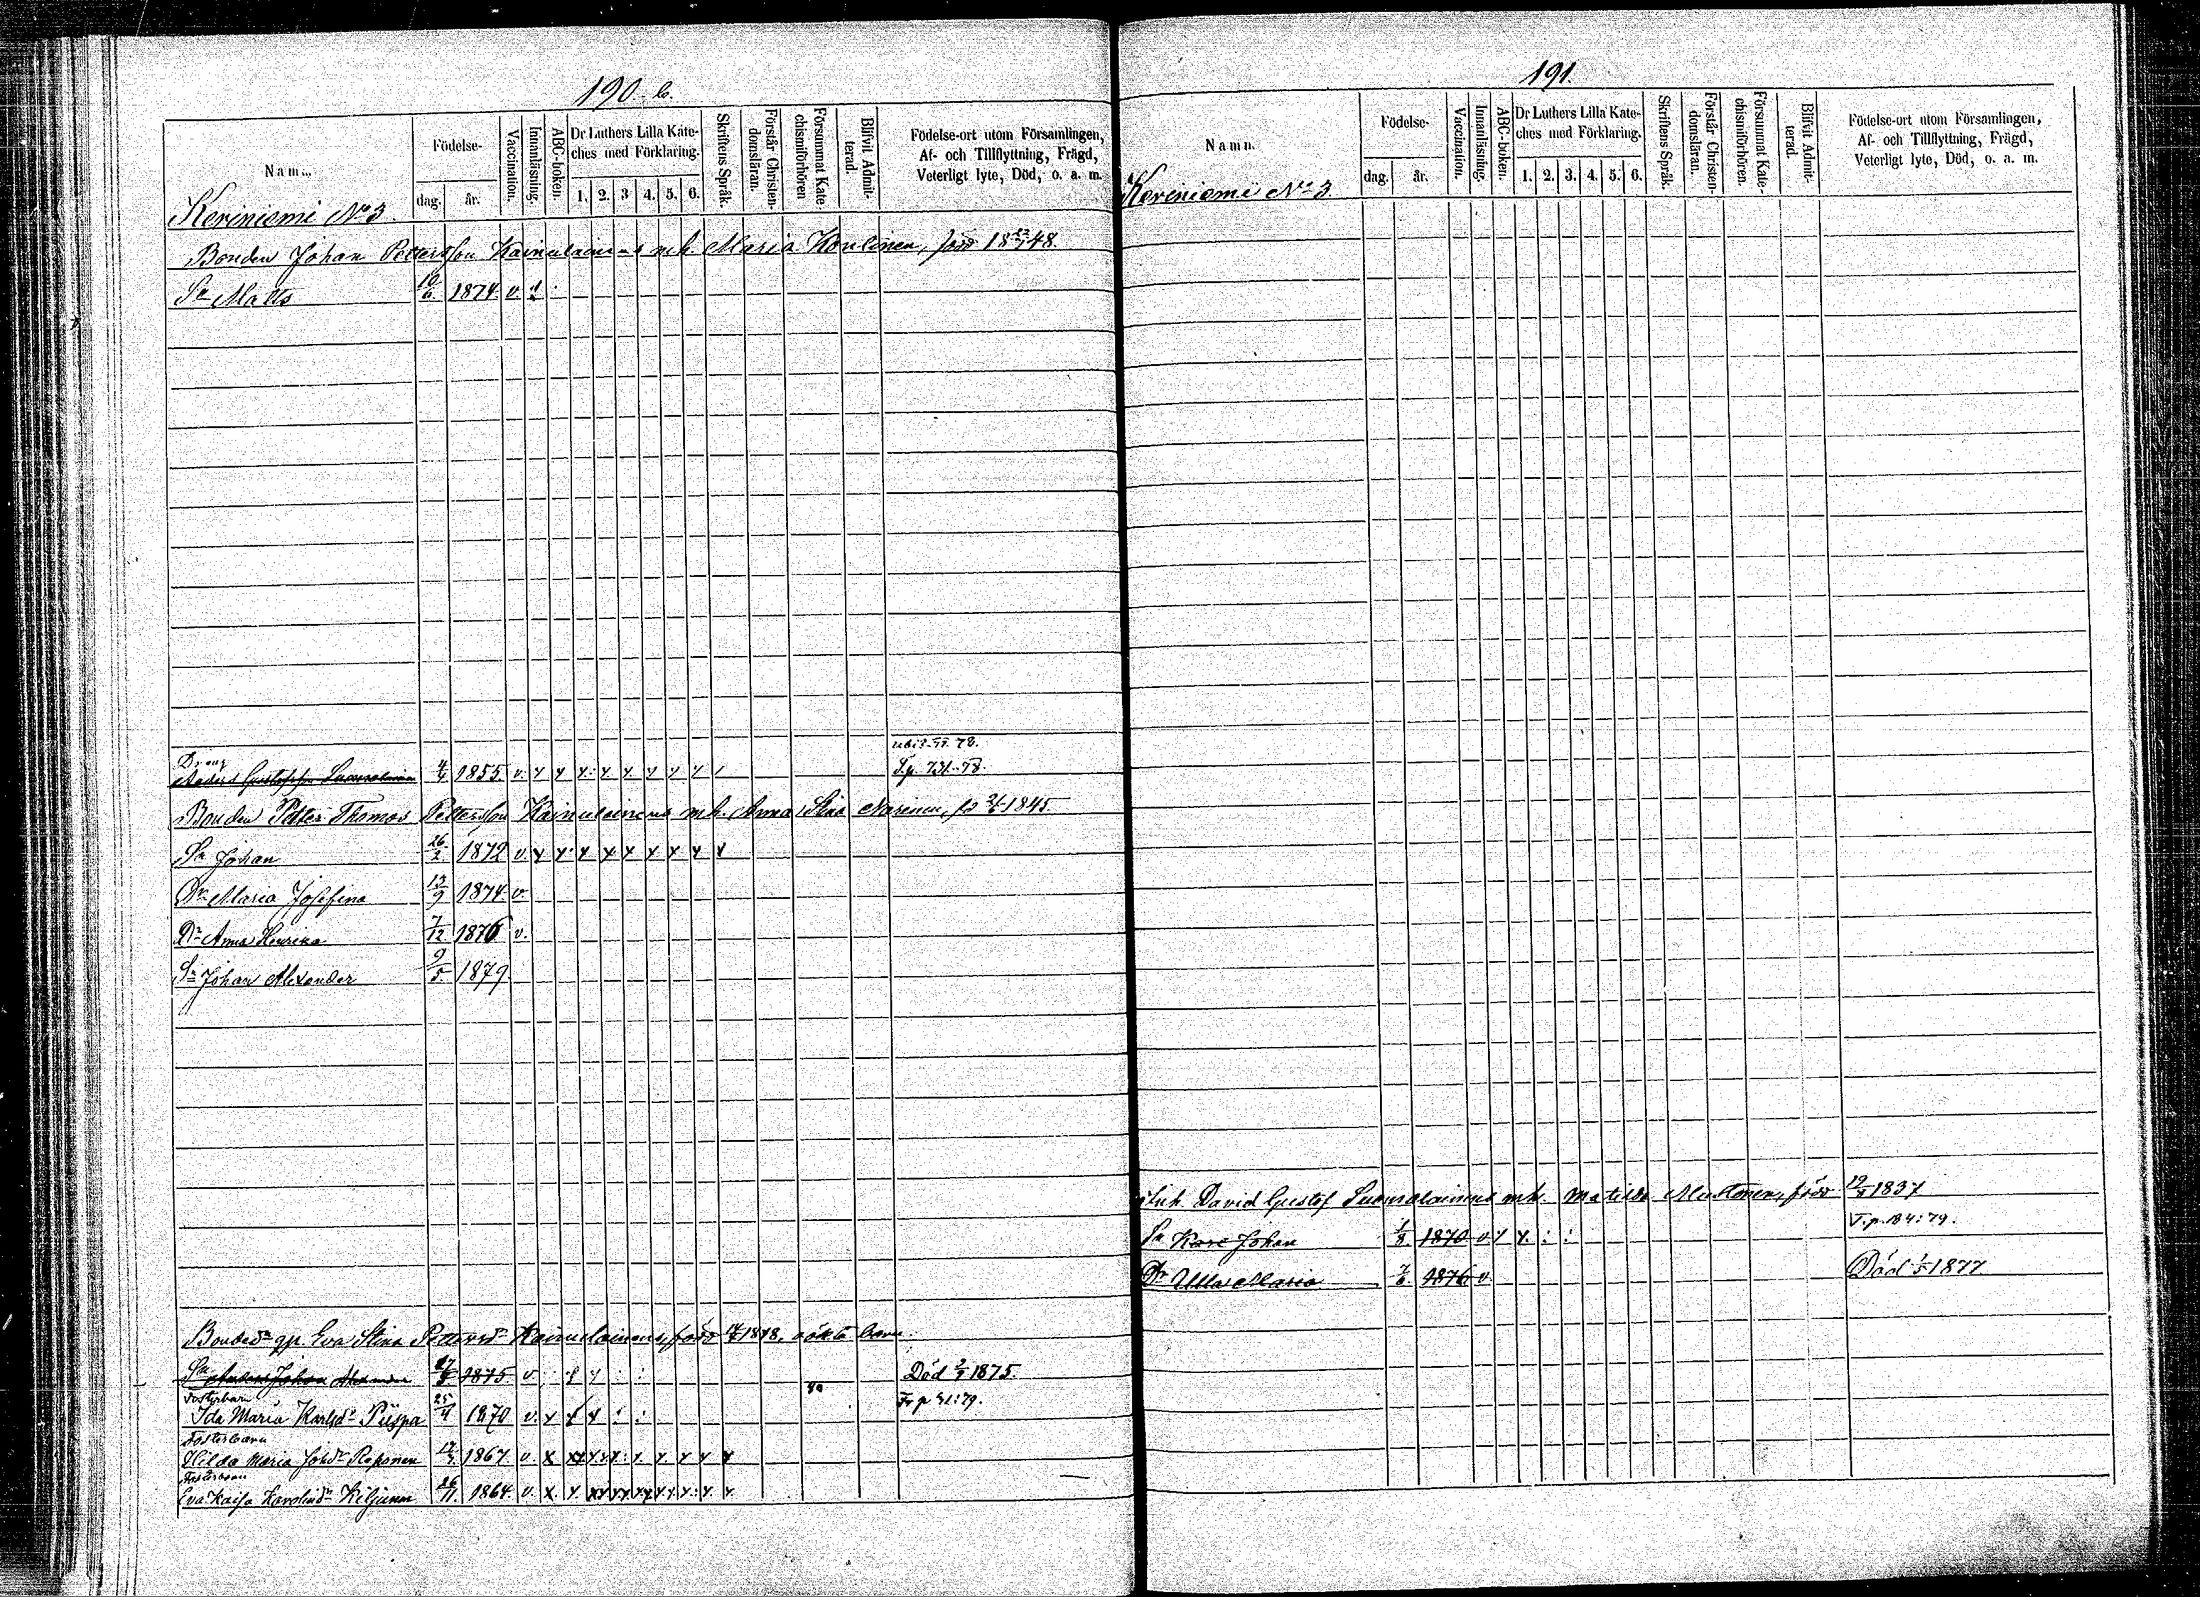 190-b.
Namn.
Födelse-
dag.
år.
Vaccination.
Innanläsning.
ABC-boken.
Dr Luthers Lilla Kate-
ches med Förklaring.
1. 2. 3 4. 5. 6.
Skriftens Språk.
Förstår Christen-
domsläran.
Försummat Kate
chismiförhören
Blifvit Admit-
terad.
Födelse-ort utom Församlingen,
Af- och Tillflyttning, Frägd,
Veterligt lyte, Död, o. a. m.
Keriniemi No 3.
Bonden Johan Pettersson Kainulainens m.h. Maria Konlinen, född 18 23/1 48.
Sn Matts 10/6 1874 v.
Dräng 78.
Anders Gustafsson Suomalainen 4/4 1855 v. y y y y y y y y T.p. 731-78.
Bonden Petter Thomas Pettersson Kainulainens m.h. Anna Stina Narinen, fd 2/6 1845.
Sn Johan 26/2 1872 v. x y x x x x x x x
Dr Maria Josefina 13/9 1874 v.
Dr Anna Henrika 7/12 1876 v.
Sn Johan Alexander 9/5 1879
Bondedr Eva Stina Pettersdr Kainulainens, född 1848, oäkta barn.
Sn Anders Johan 1875 v. Död 2/9 1875.
Fosterbarn
Ida Maria Karlsdr Piispa 25/4 1870 v. x x x : : Fr p 41:79.
Fosterbarn
Hilda Maria Johdr Reponen 1867 v. x xx
Fosterbarn
Eva Kaisa Karolindr Kiljunen 26/11 1864 v. x
191.
Namn.
Födelse-
dag.
år.
Vaccination.
Innanläsning.
ABC-boken.
Dr Luthers Lilla Kate-
ches med Förklaring.
1. 2. 3. 4. 5. 6.
Skriftens Språk.
Förstår Christen-
domsläran.
Försummat Kate-
chismiförhören.
Blifvit Admit-
terad.
Födelse-ort utom Församlingen,
Af- och Tillflyttning, Frägd,
Veterligt lyte, Död, o. a. m.
Keriniemi No 3
Inh. David Gustaf Suomalainens m.h. Matilda Mustonen, född 1837
Sn Karl Johan 1/8 1870 v. y y. : : T.p. 184:79.
Dr Ulla Maria 7/6 1876 v. Död 1/5 1877